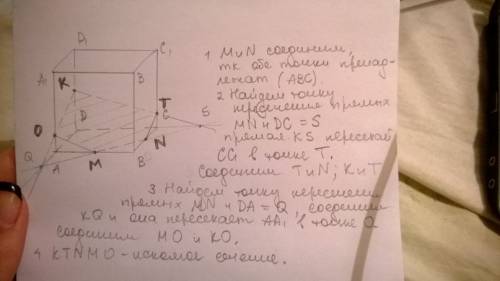 D₁
C₁
A₁
B
K
D
T
C
S
O
N
Q
A
M
B
1 M и N соединим,
тк обе точки принад-
лежат (ABC).
2 Найдем точку
пересечения прямых
MN и DC = S
прямая KS пересекает
CC₁ в точке T.
Соединим T и N; K и T
3. Найдем точку пересечения
прямых MN и DA = Q соединим
KQ и она пересекает AA₁ в точке O
соединим MO и KO.
4 KTNMO - искомое сечение.